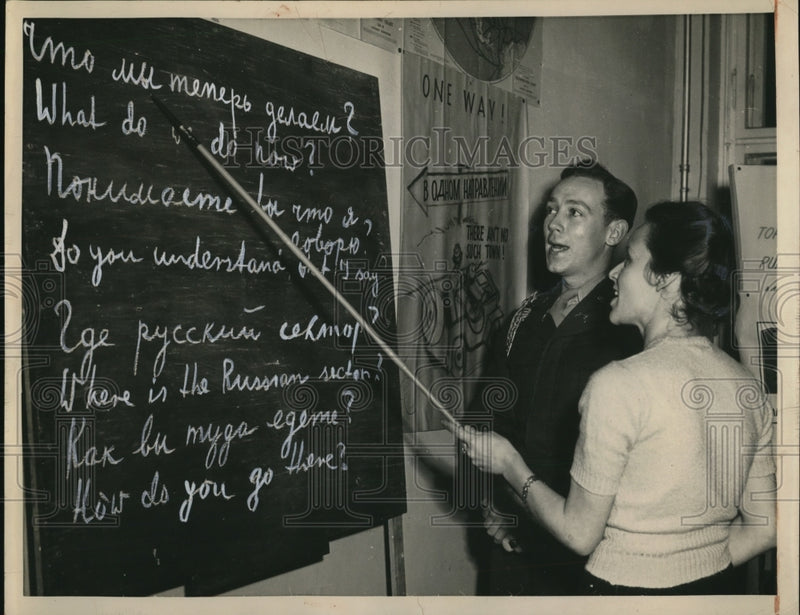 Что мы теперь делаем?
What do we do now?
Понимаете вы что я говорю
Do you understand what I say?
Где русский сектор?
Where is the Russian sector?
Как вы туда едете?
How do you go there?
ONE WAY!
В ОДНОМ НАПРАВЛЕНИИ
THERE AIN'T
NO SUCH TOWN!
HISTORIC IMAGES